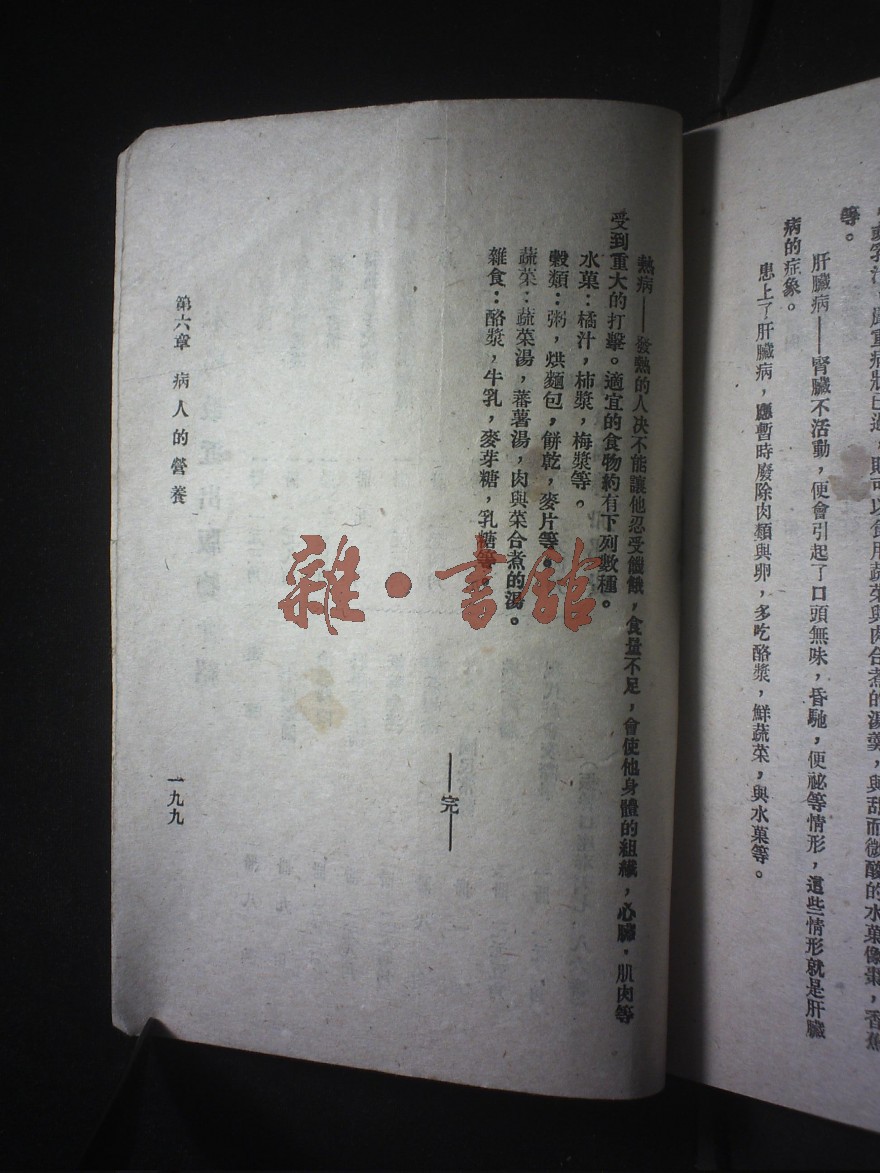 等。
肝臟病——腎臟不活動，便會引起了口頭無味，昏馳，便祕等情形，這些情形就是肝臟
病的症象。
患上了肝臟病，應暫時廢除肉類與卵，多吃酪漿，鮮蔬菜，與水菓等。
熱病——發熱的人决不能讓他忍受饑餓，食量不足，會使他身體的組織，心臟，肌肉等
受到重大的打擊。適宜的食物約有下列數種。
水菓：橘汁，柿漿，梅漿等。
穀類：粥，烘麵包，餅乾，麥片等。
蔬菜：蔬菜湯，蕃薯湯，肉與菜合煮的湯。
雜食：酪漿，牛乳，麥芽糖，乳糖等。
——完——
第六章 病人的營養
一九九
雜·書館